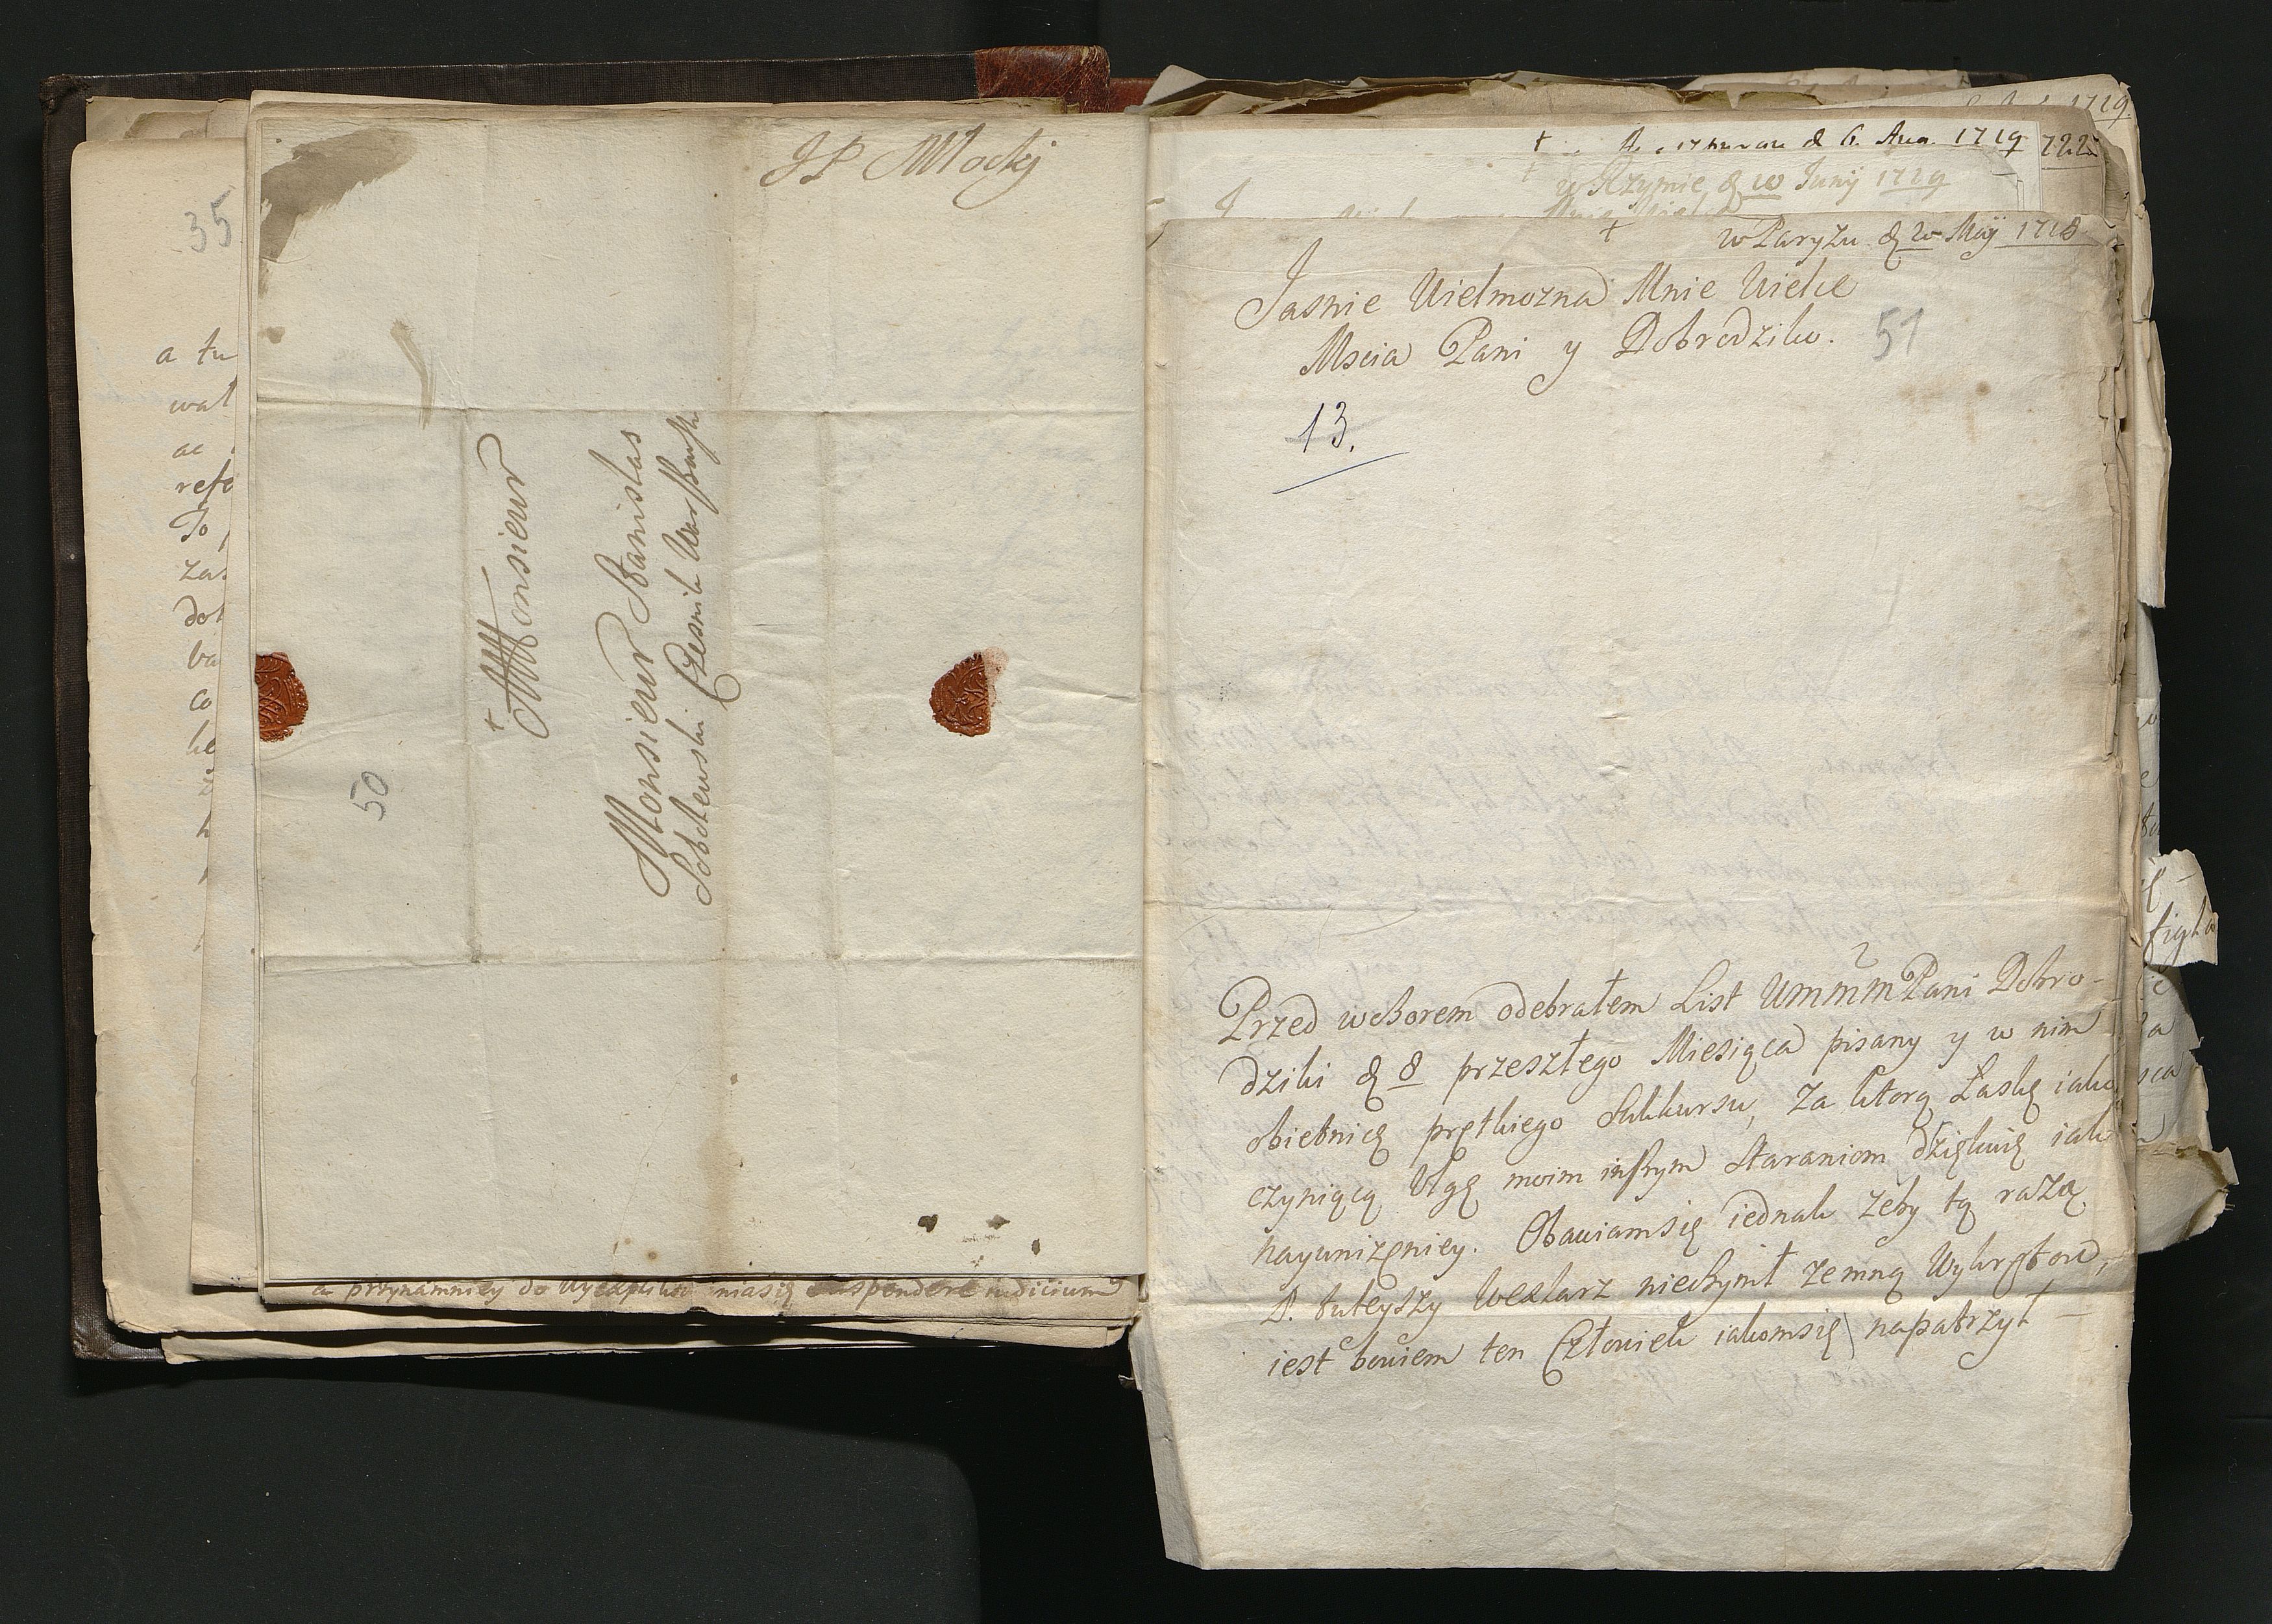 35
a tu
wat
ac
refo
To
zas
dot
ba
co
he
JP Młockj
Monsieur
Monsieur Stanislas
Sobolewski Czesnik Warszawski
50
a przynamniey do Wyexplikow niasię suspendere iudicium
1719
d 6. Aug. 1719
722
w Rzymie d 10 Junij 1719
w Paryzu d 20 Maij 1718
Jasnie Wielmozna Mnie Wielce
Mscia Pani y Dobrodziko.
51
13.
Przed wczorem odebrałem List WmmmPani Dobro-
dziki d 8 przeszłego Miesiąca pisany y w nim
obietnicę prętkiego Sukkursu, za ktorą Łaskę iako
czyniącą Ulgę moim inszym staraniom dziękuię iak
nayunizeniey. Obawiamsię iednak zeby tą razą
P. tuteyszy Wexlarz nieczynił zemną Wykrętow,
iest bowiem ten Człowiek iakomsię napatrzył